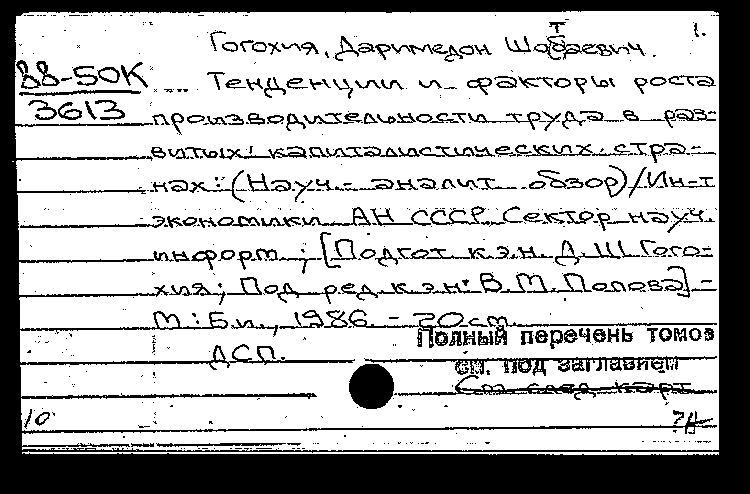 1.
Гогохия, Даримедон Шотаевич.
88-50К
3613
Тенденции и факторы роста
производительности труда в раз-
витых капиталистических стра-
нах: (Науч.-аналит обзор)/Ин-т
экономики АН СССР. Сектор науч.
информ.; [Подгот. к.э.н. Д.Ш Гого-
хия; Под ред. к.э.н. В.М. Попова] -
М: Б.и., 1986. - 20см.
ДСП.
Полный перечень томов
см. под заглавием
См след карт
10